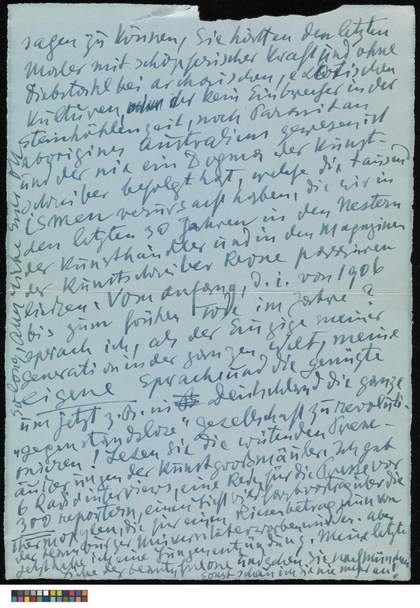 sagen zu können, Sie hätten den letzten
Maler mit schöpferischer Kraft und ohne
Diebstahl bei archaischen, exotischen
Kulturen, der kein Einbrecher in der
Steinhöhlenzeit, noch Parasit an
aborigines Australiens gewesen ist
und der nie ein Dogma der Kunst-
schreiber befolgt hat, welche die tausend
ismen verursacht haben, die wir in
den letzten 30 Jahren in den Nestern
der Kunsthändler und in den Magazinen
der Kunstschreiber Revue passieren
liessen. Vom anfang, d.i. von 1906
bis zum frühen Tode im Jahre ?
sprach ich, als der Einzige meiner
Generation in der ganzen Welt, meine
eigene Sprache und die genügte
um jetzt z.B. in Deutschland die ganze
"gegenstandslose" gesellschaft zu revoluti-
onieren! Lesen Sie die wütenden Presse-
äusserungen der Kunstgoodsmänner. Ich gab
6 Radiointerviews, eine Rede für die Presse vor
300 reportern, einen Lichtbildervortrag über die
Thermopylen, die für einen Riesenbetrag nun von
der Hamburger Universität erworben wurden. aber
jetzt habe ich eine Lungenentzündung. Meine letzte